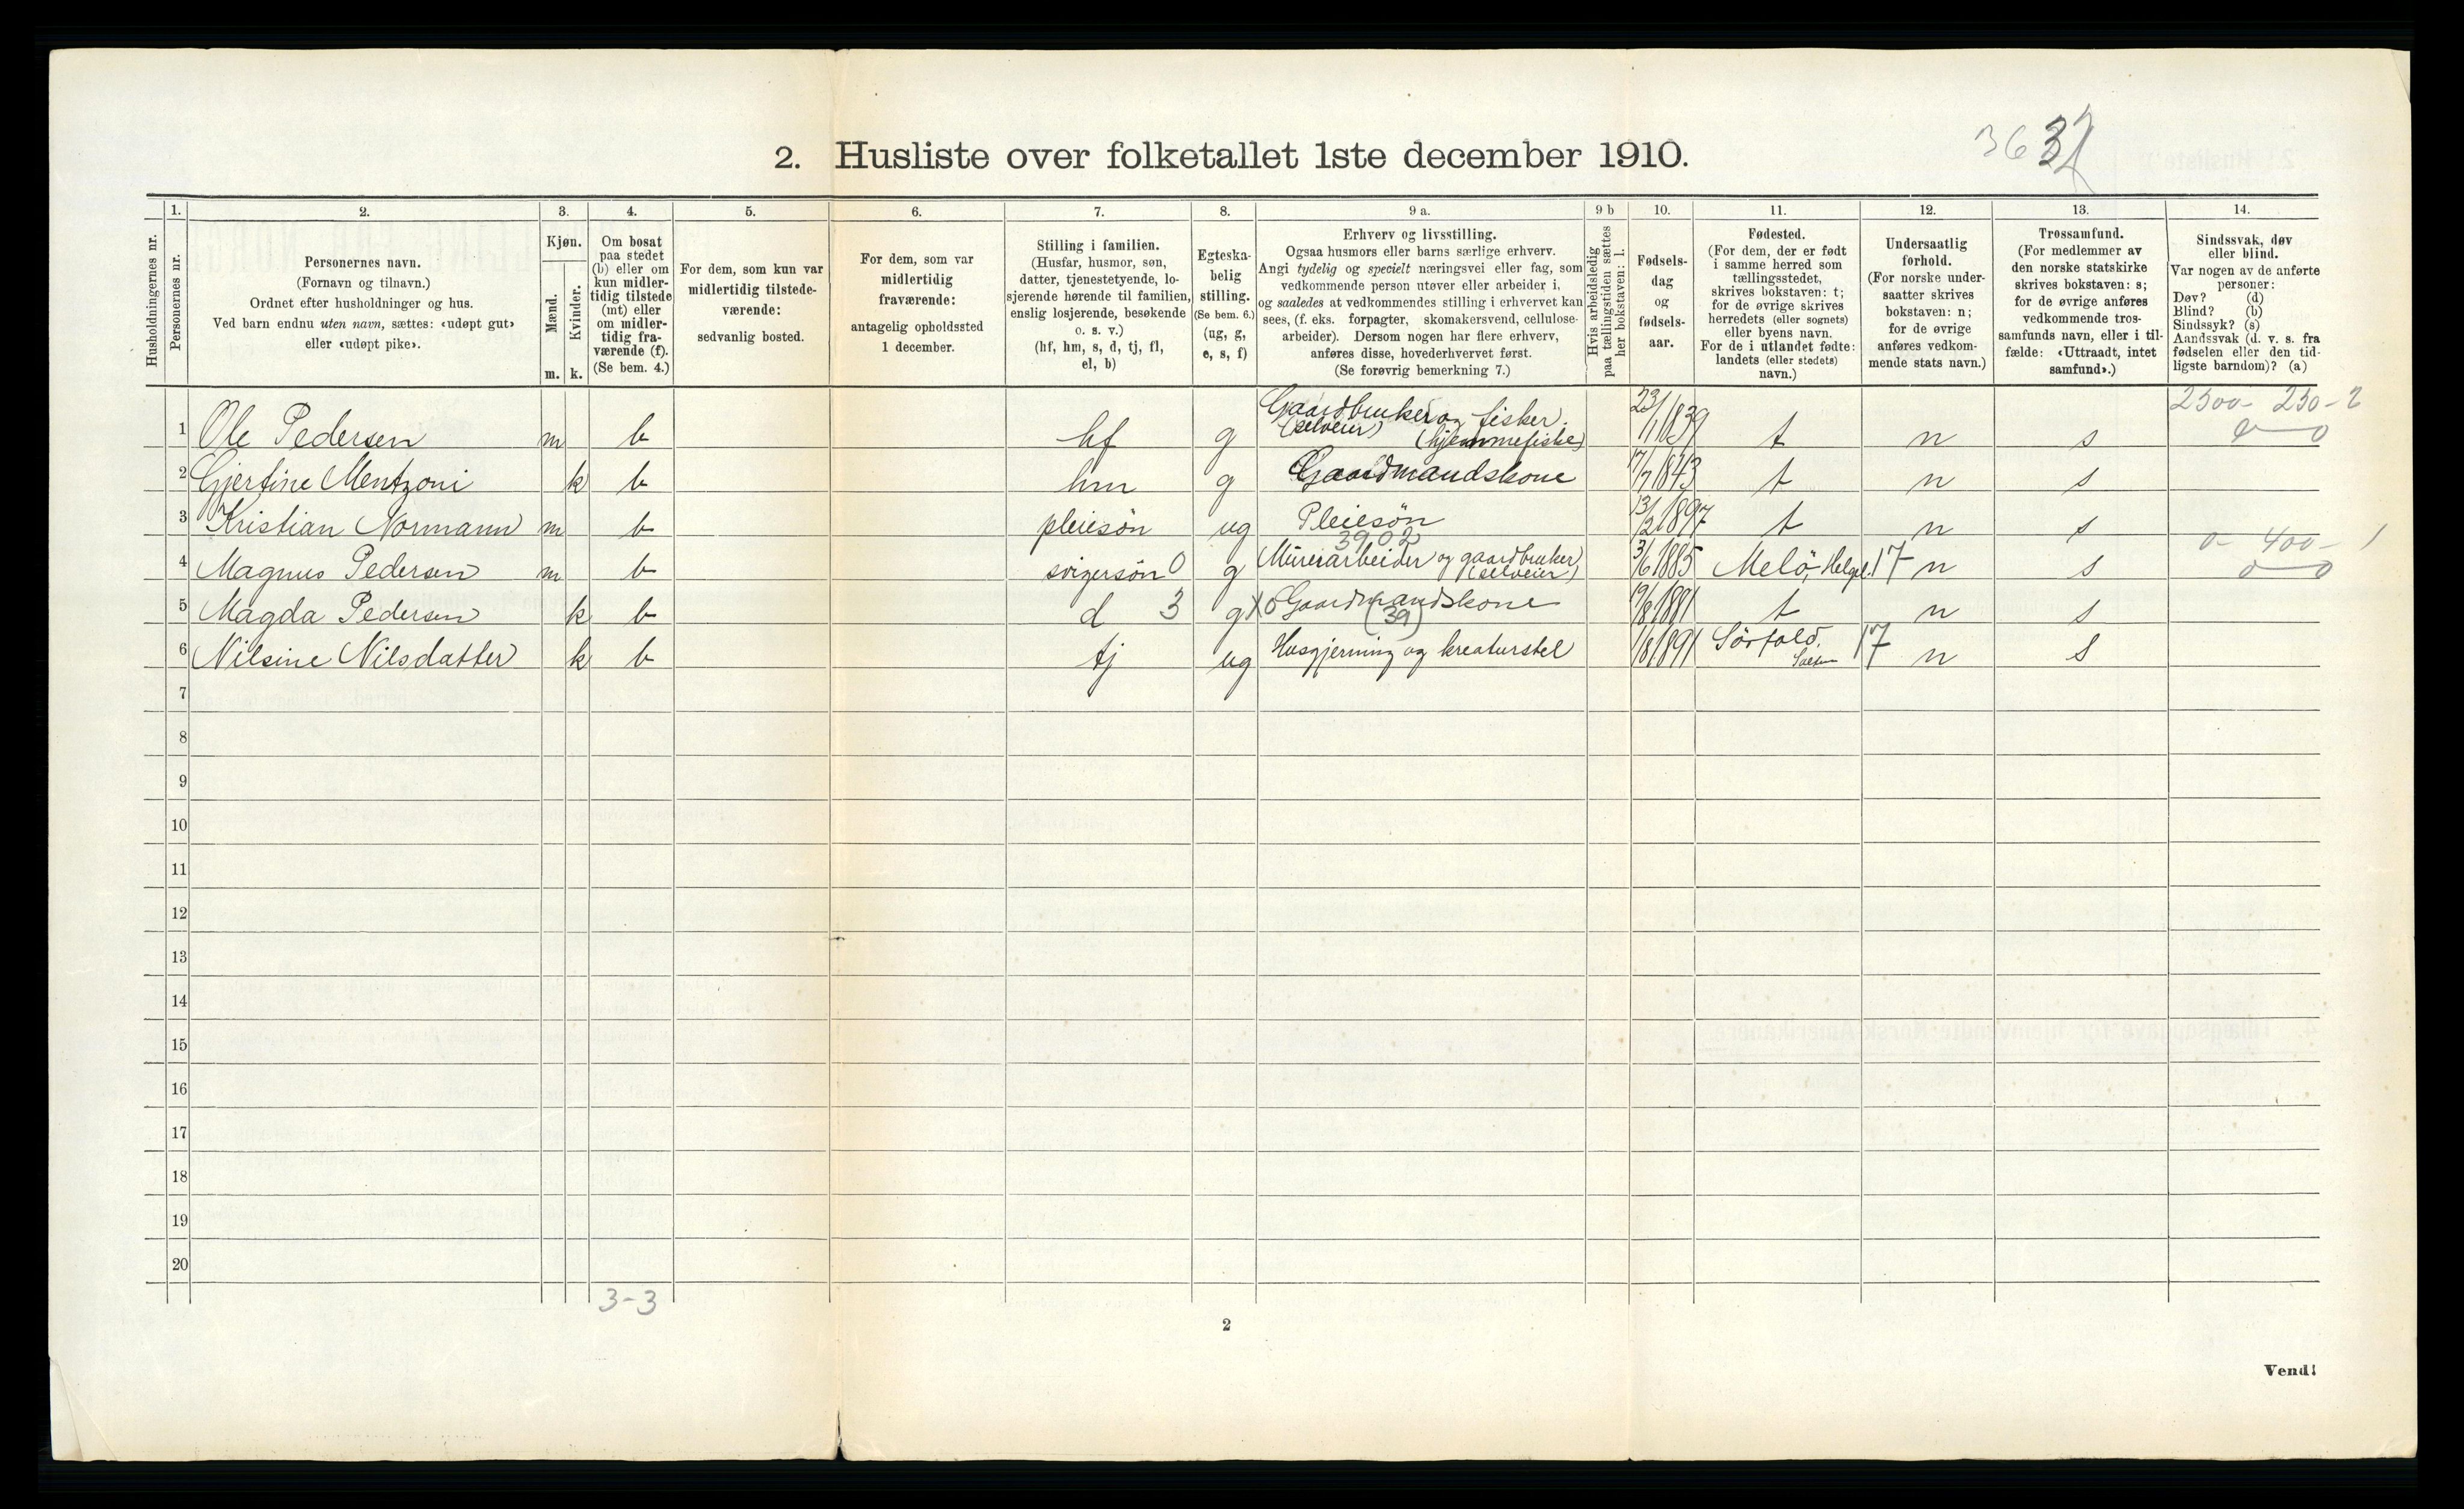 2. Husliste over folketallet 1ste december 1910.
Husholdningernes nr.
1.
Personernes nr.
2.
Personernes navn.
(Fornavn og tilnavn.)
Ordnet efter husholdninger og hus.
Ved barn endnu uten navn, sættes: «udøpt gut»
eller «udøpt pike».
3.
Kjøn.
Mænd.
Kvinder.
m. k.
4.
Om bosat
paa stedet
(b) eller om
kun midler-
tidig tilstede
(mt) eller
om midler-
tidig fra-
værende (f).
(Se bem. 4.)
5.
For dem, som kun var
midlertidig tilstede-
værende:
sedvanlig bosted.
6.
For dem, som var
midlertidig
fraværende:
antagelig opholdssted
1 december.
7.
Stilling i familien.
(Husfar, husmor, søn,
datter, tjenestetyende, lo-
sjerende hørende til familien,
enslig losjerende, besøkende
o. s. v.)
(hf, hm, s, d, tj, fl,
el, b)
8.
Egteska-
belig
stilling.
(Se bem. 6.)
(ug, g,
e, s, f)
9 a.
Erhverv og livsstilling.
Ogsaa husmors eller barns særlige erhverv.
Angi tydelig og specielt næringsvei eller fag, som
vedkommende person utøver eller arbeider i,
og saaledes at vedkommendes stilling i erhvervet kan
sees, (f. eks. forpagter, skomakersvend, cellulose-
arbeider). Dersom nogen har flere erhverv,
anføres disse, hovederhvervet først.
(Se forøvrig bemerkning 7.)
9 b
Hvis arbeidsledig
paa tællingstiden sættes
her bokstaven: l.
10.
Fødsels-
dag
og
fødsels-
aar.
11.
Fødested.
(For dem, der er født
i samme herred som
tællingsstedet,
skrives bokstaven: t;
for de øvrige skrives
herredets (eller sognets)
eller byens navn.
For de i utlandet fødte:
landets (eller stedets)
navn.)
12.
Undersaatlig
forhold.
(For norske under-
saatter skrives
bokstaven: n;
for de øvrige
anføres vedkom-
mende stats navn.)
13.
Trossamfund.
(For medlemmer av
den norske statskirke
skrives bokstaven: s;
for de øvrige anføres
vedkommende tros-
samfunds navn, eller i til-
fælde: «Uttraadt, intet
samfund».)
14.
Sindssvak, døv
eller blind.
Var nogen av de anførte
personer:
Døv? (d)
Blind? (b)
Sindssyk? (s)
Aandssvak (d. v. s. fra
fødselen eller den tid-
ligste barndom)? (a)
2500- 250-2
1 Ole Pedersen m b hf g Gaardbruker og fisker. (selveier) (hjemmefiske) 23/1 1839 t n s 0-0
2 Gjertine Mentzoni k b hm g Gaardmandskone 17/7 1843 t n s
3 Kristian Normann m b pleiesøn ug Pleiesøn 13/2 1897 t n s
3902 0- 400- 1
4 Magnus Pedersen m b svigersøn 0 g Murerarbeider og gaardbruker (selveier) 3/6 1885 Melö, Helgel. 17 n s 0-0
5 Magda Pedersen k b d 3 g x 0 Gaardmandskone (39) 19/8 1881 t n s
6 Nilsine Nilsdatter k b tj ug Husgjerning og kreaturstel 1/8 1891 Sörfold, Salten 17 n s
7
8
9
10
11
12
13
14
15
16
17
18
19
20
3-3
2
Vend!